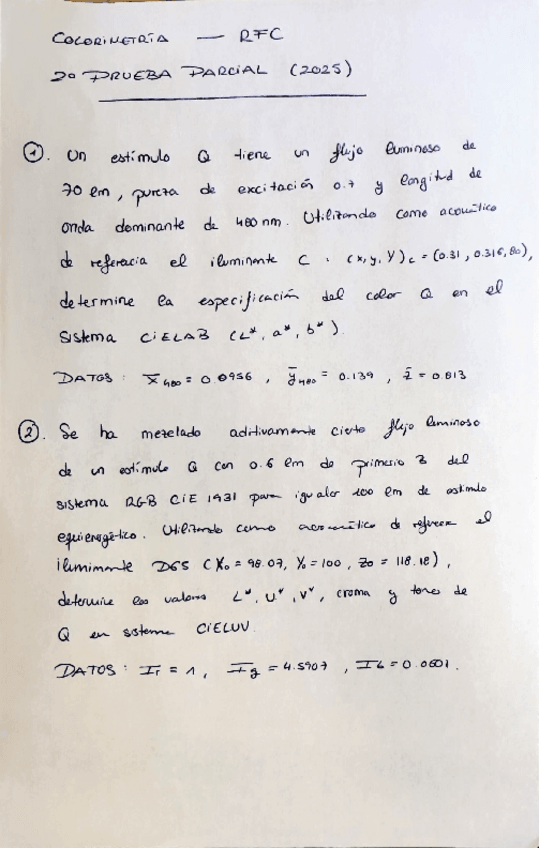 COLORIMETRÍA — RFC
2º PRUEBA PARCIAL (2025)
①. Un estímulo Q tiene un flujo luminoso de
70 lm, pureza de excitación 0.7 y longitud de
onda dominante de 480 nm. Utilizando como acromático
de referencia el iluminante C : (x, y, Y)c = (0.31, 0.316, 80),
determine la especificación del color Q en el
sistema CIELAB (L*, a*, b*).
DATOS : x̄480 = 0.0956 , ȳ480 = 0.139 , z̄ = 0.813
②. Se ha mezclado aditivamente cierto flujo luminoso
de un estímulo Q con 0.6 lm de primario B del
sistema RGB CIE 1931 para igualar 100 lm de estímulo
equienergético. Utilizando como acromático de referencia el
iluminante D65 (X₀ = 98.07, Y₀ = 100, Z₀ = 118.18),
determine los valores L*, U*, V*, croma y tono de
Q en sistema CIELUV.
DATOS : Ir = 1, Ig = 4.5907, Ib = 0.0601.